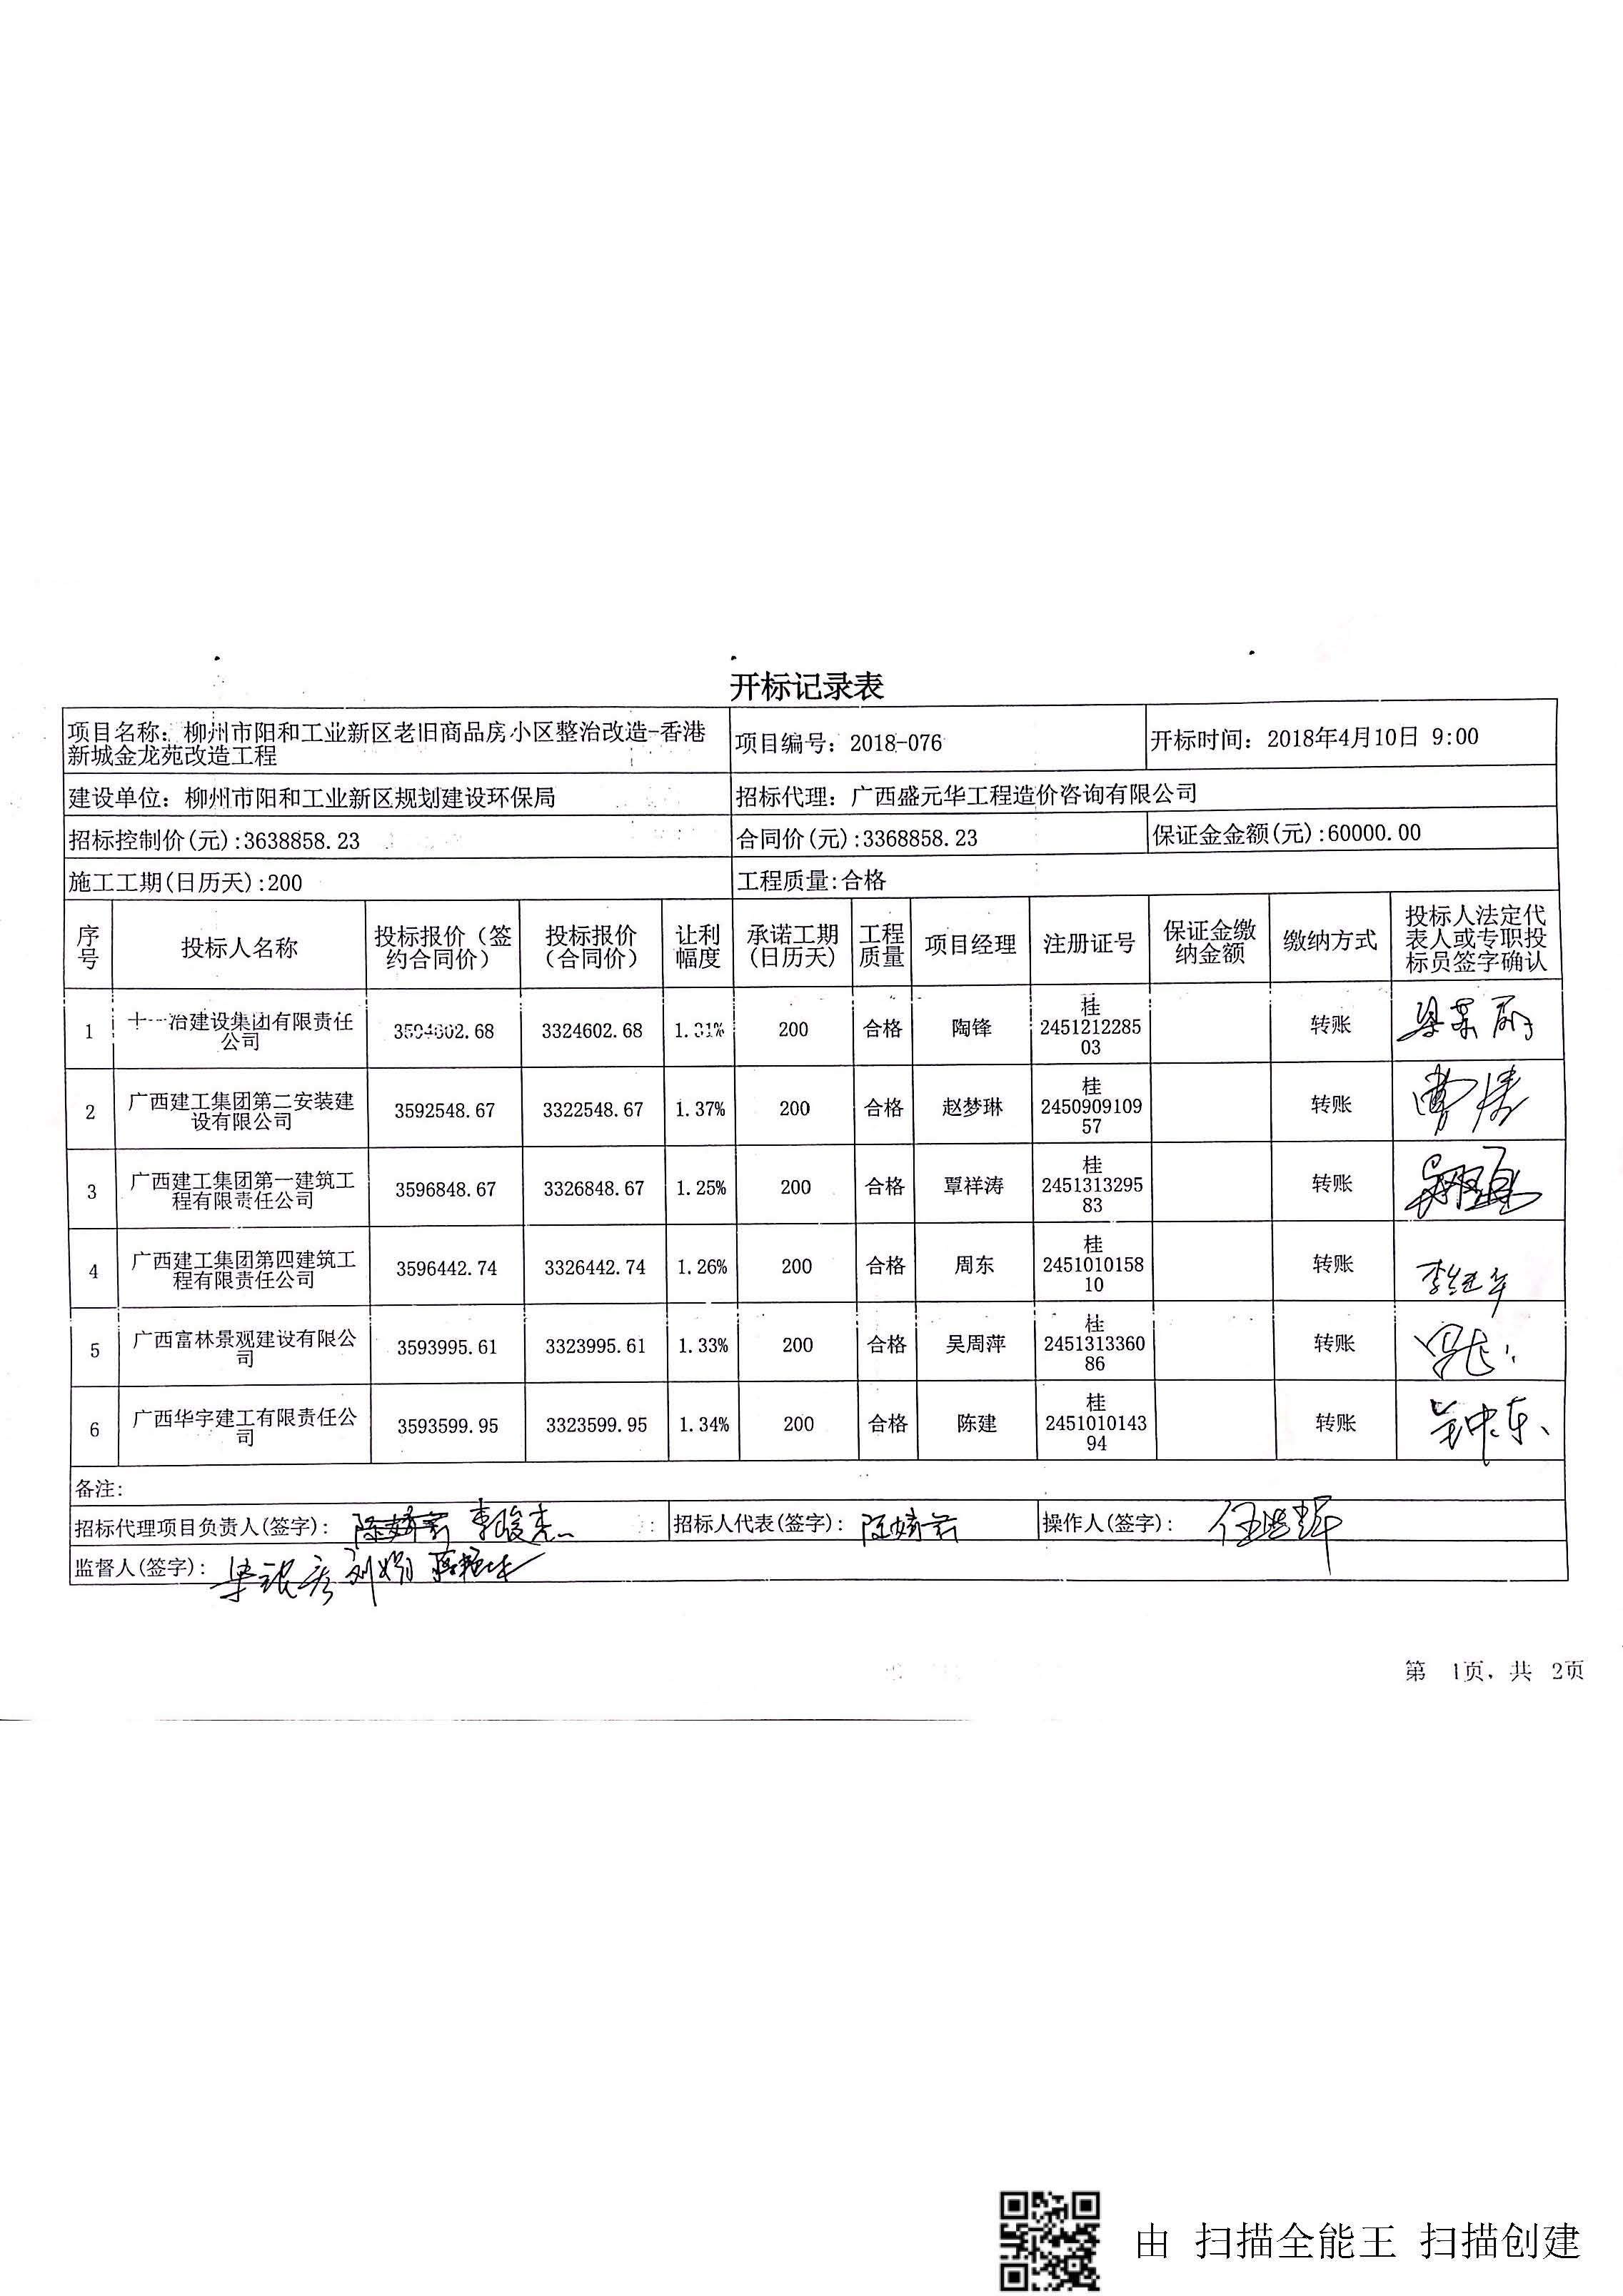 开标记录表
项目名称：柳州市阳和工业新区老旧商品房小区整治改造-香港
新城金龙苑改造工程
项目编号：2018-076
开标时间：2018年4月10日 9:00
建设单位：柳州市阳和工业新区规划建设环保局
招标代理：广西盛元华工程造价咨询有限公司
招标控制价(元):3638858.23
合同价(元):3368858.23
保证金金额(元):60000.00
施工工期(日历天):200
工程质量:合格
序号 投标人名称 投标报价（签约合同价） 投标报价（合同价） 让利幅度 承诺工期(日历天) 工程质量 项目经理 注册证号 保证金缴纳金额 缴纳方式 投标人法定代表人或专职投标员签字确认
1 十一冶建设集团有限责任公司 3594602.68 3324602.68 1.31% 200 合格 陶锋 桂245121228503 转账
2 广西建工集团第二安装建设有限公司 3592548.67 3322548.67 1.37% 200 合格 赵梦琳 桂245090910957 转账
3 广西建工集团第一建筑工程有限责任公司 3596848.67 3326848.67 1.25% 200 合格 覃祥涛 桂245131329583 转账
4 广西建工集团第四建筑工程有限责任公司 3596442.74 3326442.74 1.26% 200 合格 周东 桂245101015810 转账
5 广西富林景观建设有限公司 3593995.61 3323995.61 1.33% 200 合格 吴周萍 桂245131336086 转账
6 广西华宇建工有限责任公司 3593599.95 3323599.95 1.34% 200 合格 陈建 桂245101014394 转账
备注:
招标代理项目负责人(签字):
招标人代表(签字):
操作人(签字):
监督人(签字):
第 1页，共 2页
由 扫描全能王 扫描创建